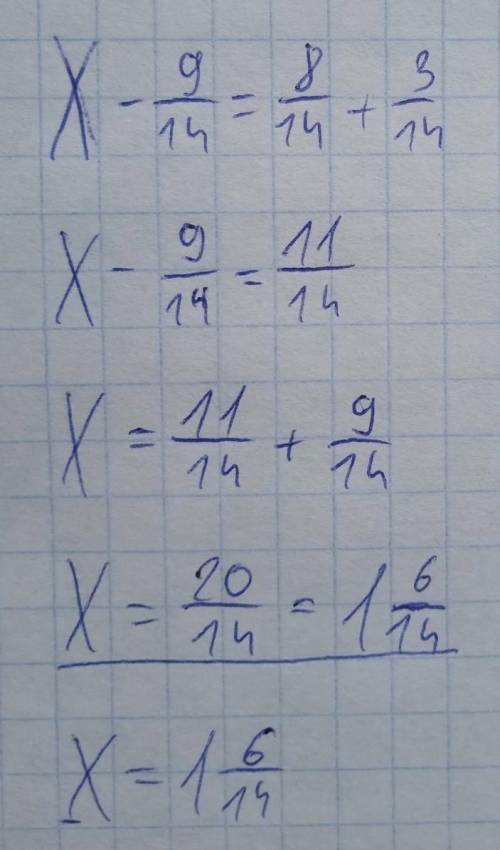 X - 9/14 = 8/14 + 3/14
X - 9/14 = 11/14
X = 11/14 + 9/14
X = 20/14 = 1 6/14
X = 1 6/14